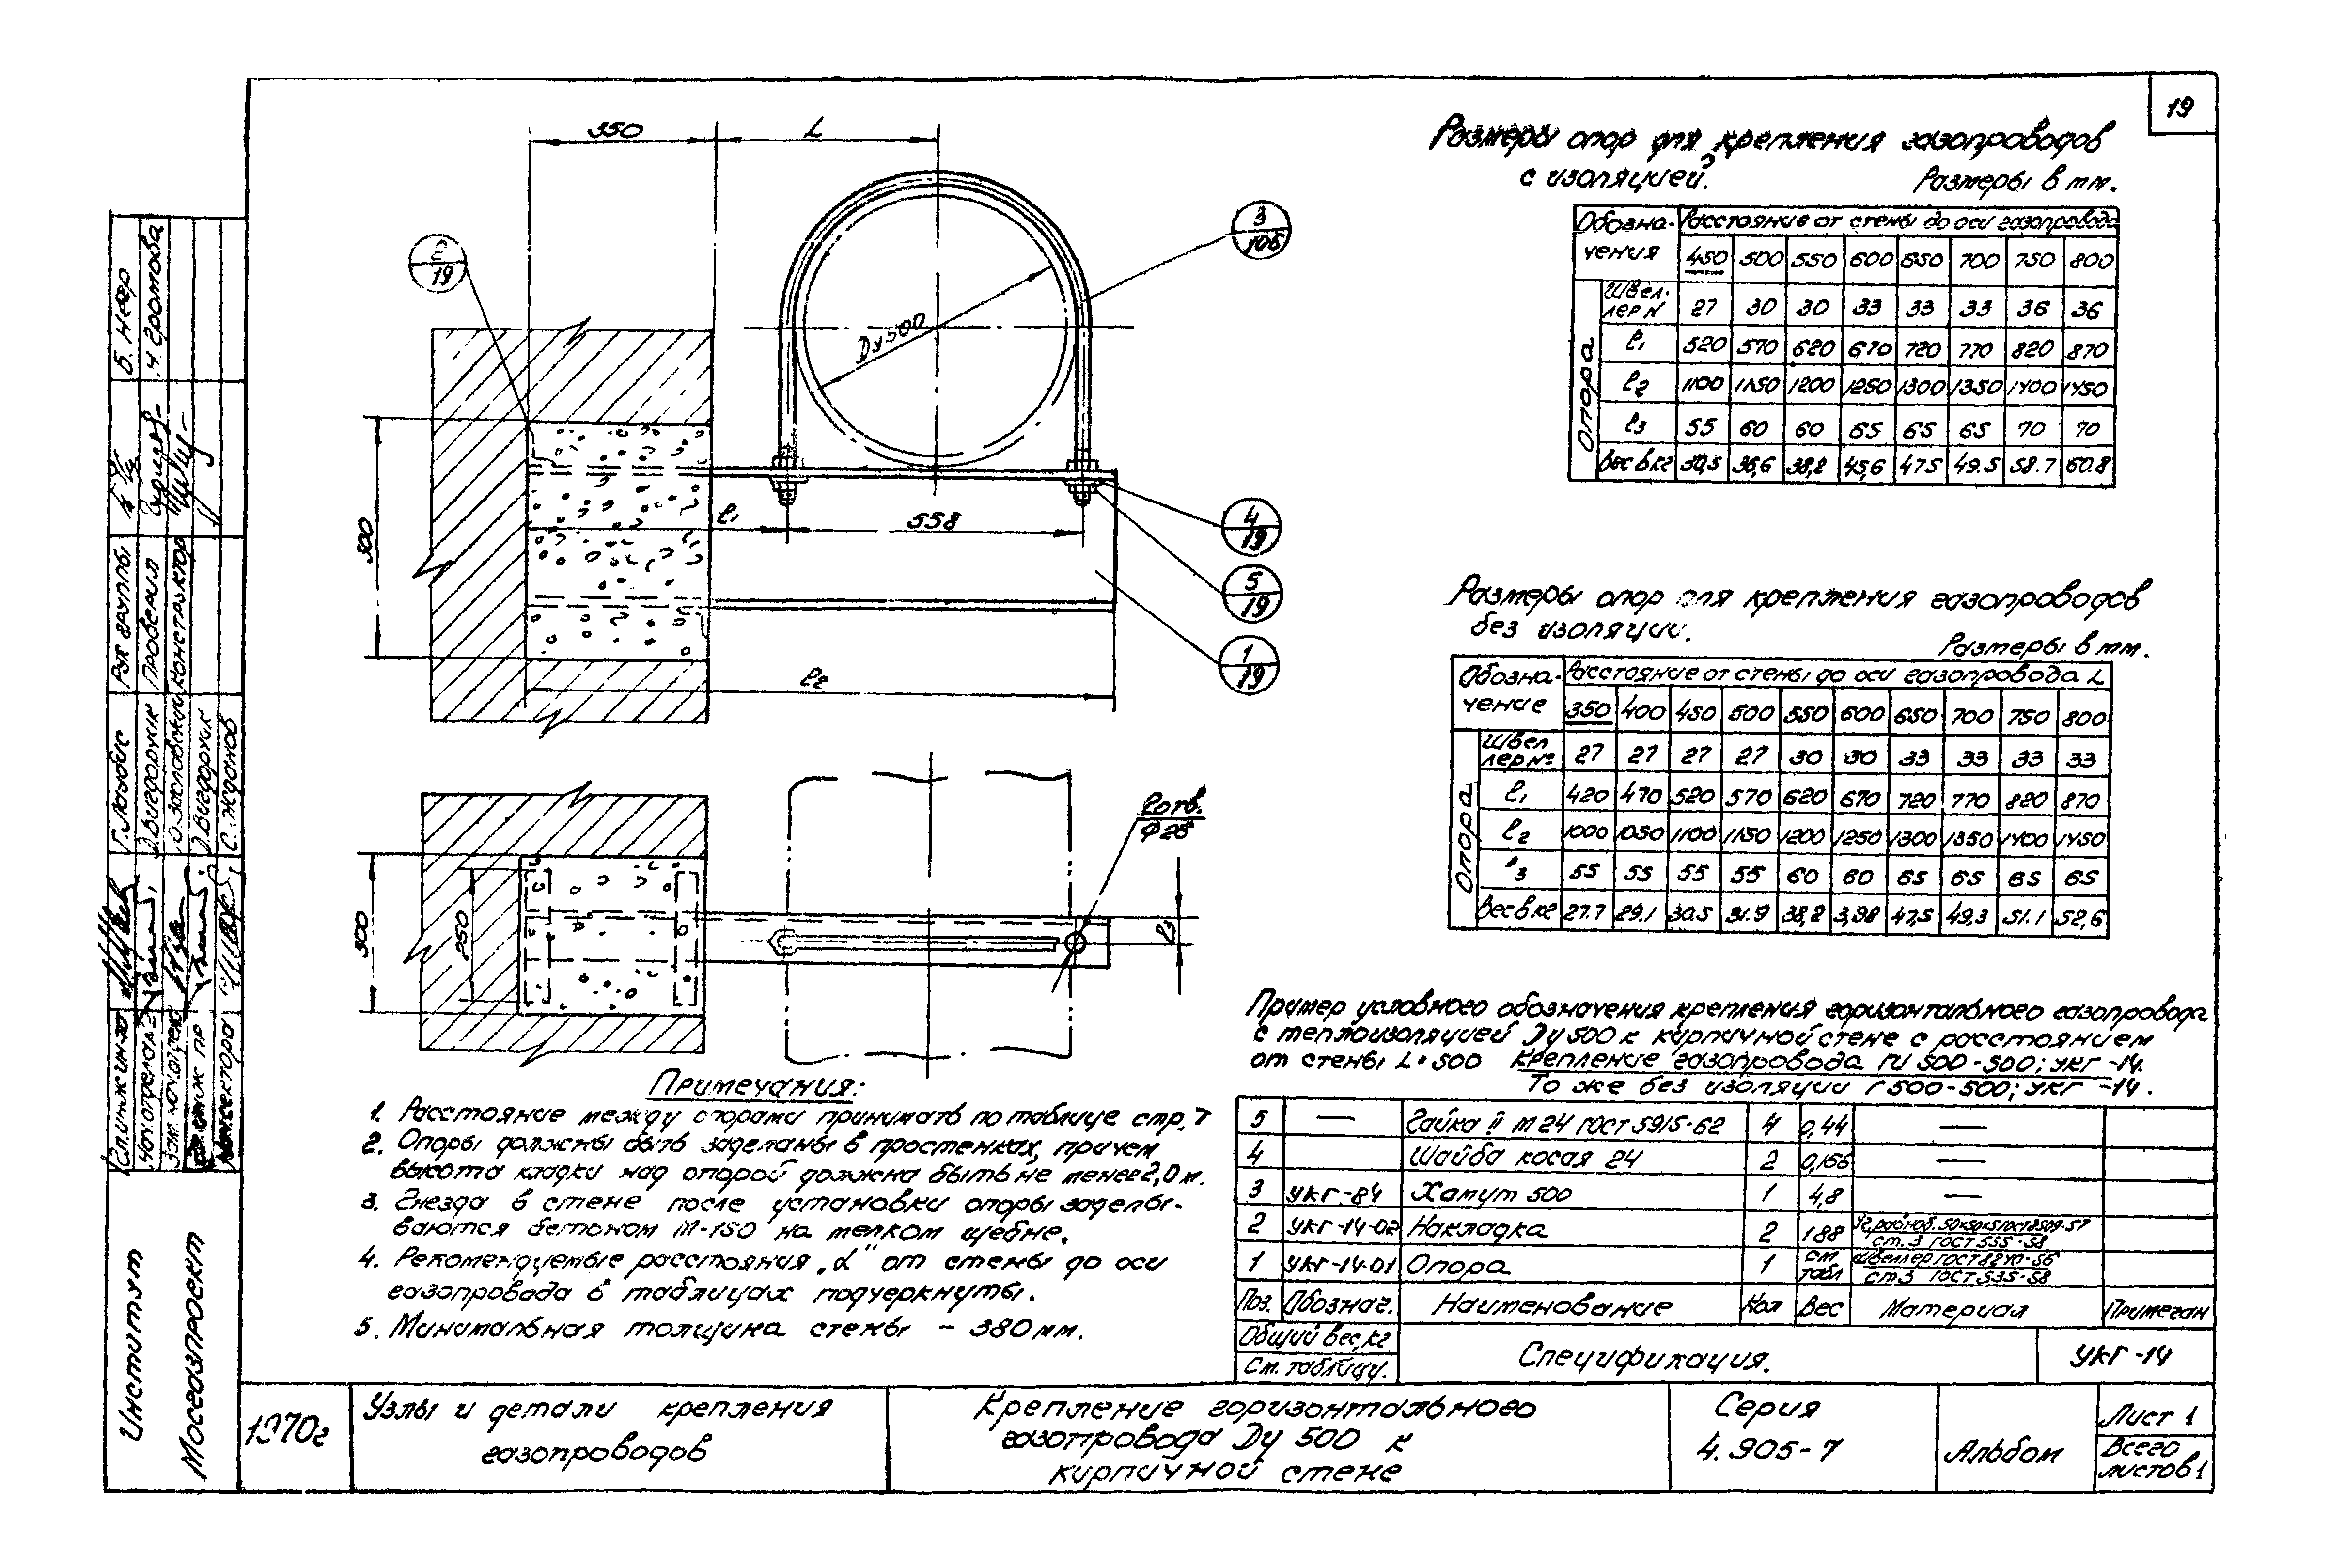 19
350
L
2
19
3
106
Dу 500
500
l₁
558
4
19
5
19
1
19
l₂
300
250
2 отв.
Ф26
l₃
Размеры опор для крепления газопроводов
с изоляцией.
Размеры в мм.
Обозна- Расстояние от стены до оси газопровода
чения 450 500 550 600 650 700 750 800
Опора
Швел-
лер N 27 30 30 33 33 33 36 36
l₁ 520 570 620 670 720 770 820 870
l₂ 1100 1150 1200 1250 1300 1350 1400 1450
l₃ 55 60 60 65 65 65 70 70
Вес в кг 30,5 36,6 38,2 45,6 47.5 49.5 58.7 60.8
Размеры опор для крепления газопроводов
без изоляции.
Размеры в мм.
Обозна- Расстояние от стены до оси газопровода L
чение 350 400 450 500 550 600 650 700 750 800
Опора
Швел
лер № 27 27 27 27 30 30 33 33 33 33
l₁ 420 470 520 570 620 670 720 770 820 870
l₂ 1000 1050 1100 1150 1200 1250 1300 1350 1400 1450
l₃ 55 55 55 55 60 60 65 65 65 65
Вес в кг 27.7 29.1 30.5 31.9 38,2 3,98 47,5 49,3 51.1 52,6
Пример условного обозначения крепления горизонтального газопровода
с теплоизоляцией Dу 500 к кирпичной стене с расстоянием
от стены L=500 Крепление газопровода ГИ 500-500; УКГ-14.
То же без изоляции Г 500-500; УКГ-14.
Примечания:
1. Расстояние между опорами принимать по таблице стр. 7
2. Опоры должны быть заделаны в простенках, причем
высота кладки над опорой должна быть не менее 2,0 м.
3. Гнезда в стене после установки опоры заделы-
ваются бетоном М-150 на мелком щебне.
4. Рекомендуемые расстояния „L" от стены до оси
газопровода в таблицах подчеркнуты.
5. Минимальная толщина стены - 380 мм.
5 — Гайка II М 24 ГОСТ 5915-62 4 0,44 —
4 Шайба косая 24 2 0,166 —
3 УКГ-84 Хамут 500 1 4,8 —
2 УКГ-14-02 Накладка 2 1.88 Уг. равноб. 50х50х5 ГОСТ 8509-57
ст. 3 ГОСТ 535-58
1 УКГ-14-01 Опора 1 см. табл Швеллер ГОСТ 8240-56
ст 3 ГОСТ 535-58
Поз. Обознач. Наименование Кол Вес Материал Примечан
Общий вес, кг
См. таблицу.
Спецификация.
УКГ-14
1970г
Узлы и детали крепления
газопроводов
Крепление горизонтального
газопровода Dу 500 к
кирпичной стене
Серия
4.905-7
Альбом
Лист 1
Всего
листов 1
Институт
Мосгазпроект
Гл. инж ин-та
Нач. отдела
Зам. нач. отдела
Гл. инж пр
Нач. сектора
Д. Вигдорчик
Д. Вигдорчик
С. Жданов
Рук группы
Проверил
Конструктор
Б. Неер
Ч. Громова